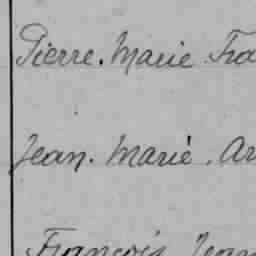 Pierre. Marie Fra
Jean. Marie. Ar
François Jean